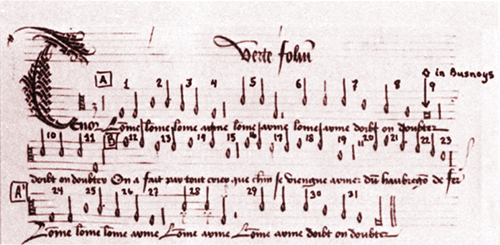 Verte foliū
◊ in Busnoys
A 1 2 3 4 5 6 7 8 9
Tenor Lome lome lome arme lome arme lome arme doibt on doubter
10 11 B 12 13 14 15 16 17 18 19 20 21 22 23
doibt on doubter On a fait par tout crier que chun se viengne armer dū haubregō de fer
A' 24 25 26 27 28 29 30 31
Lome lome lome arme Lome arme Lome arme doibt on doubter